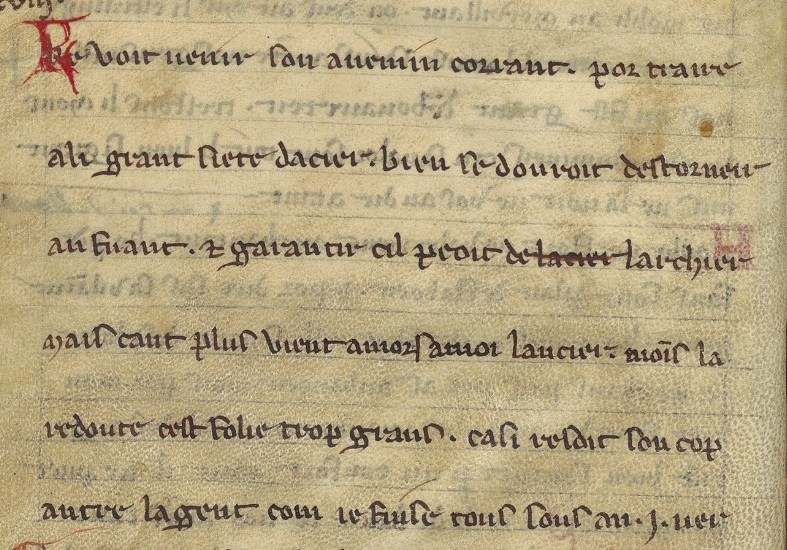 Ke voit uenir son anemin corrant. por traire
a li grant siete dacier. bien se douroit destorneir
an fuiant. ⁊ garantir cil peoit de lacier larchier
mais cant plus vient amors a moi lancier. moīs la
redoute cest folie trop grans. casi resoit son cop
antre la gent com ie fuise tous sous an .j. uer